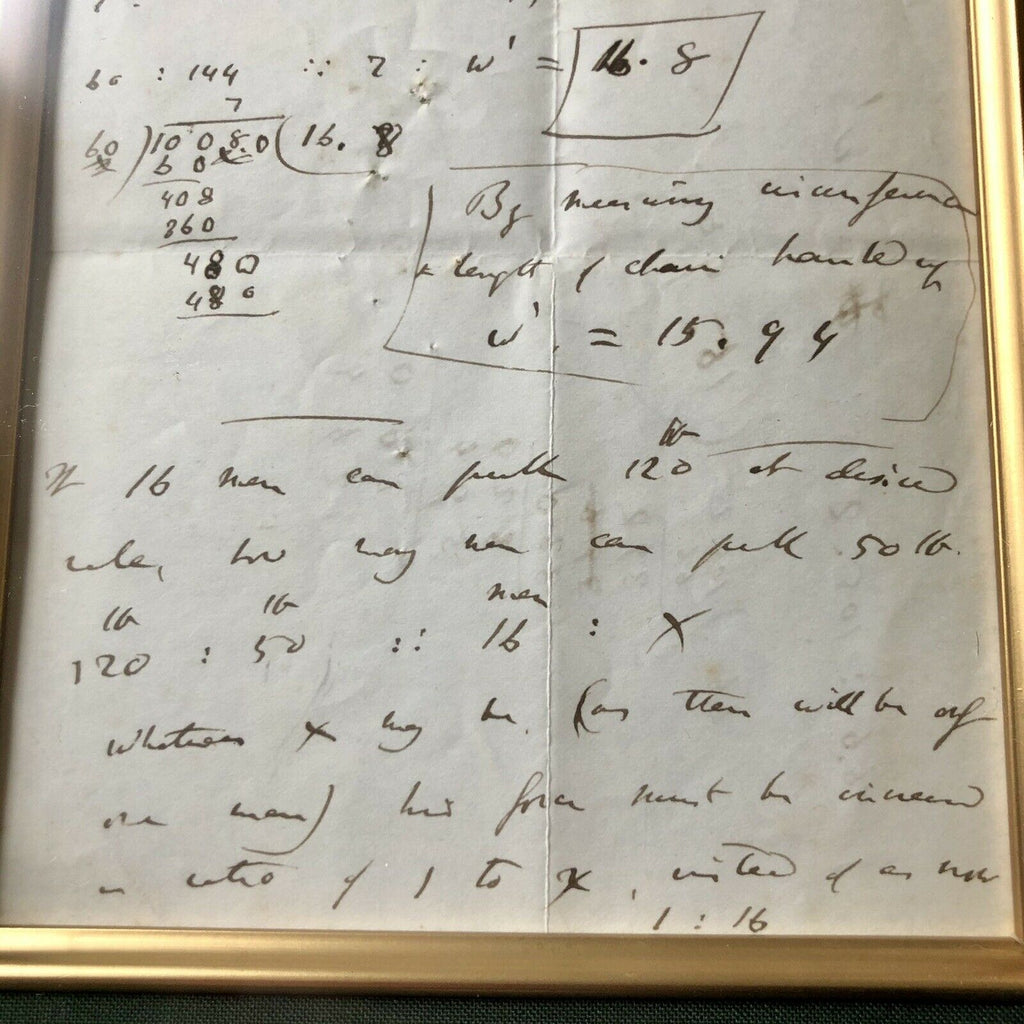 60 : 144 :: 7 : w' = 16.8
7
60) 1008.0 (16.8
60
408
360
480
480
By measuring circumference
& length of chain hauled up
w' = 15.94
If 16 men can pull 120 lb at desired
rate, how many men can pull 50 lb.
lb lb men
120 : 50 :: 16 : x
whatever x may be, (as there will be only
one man) his force must be increased
in ratio of 1 to x, instead of as now
1 : 16